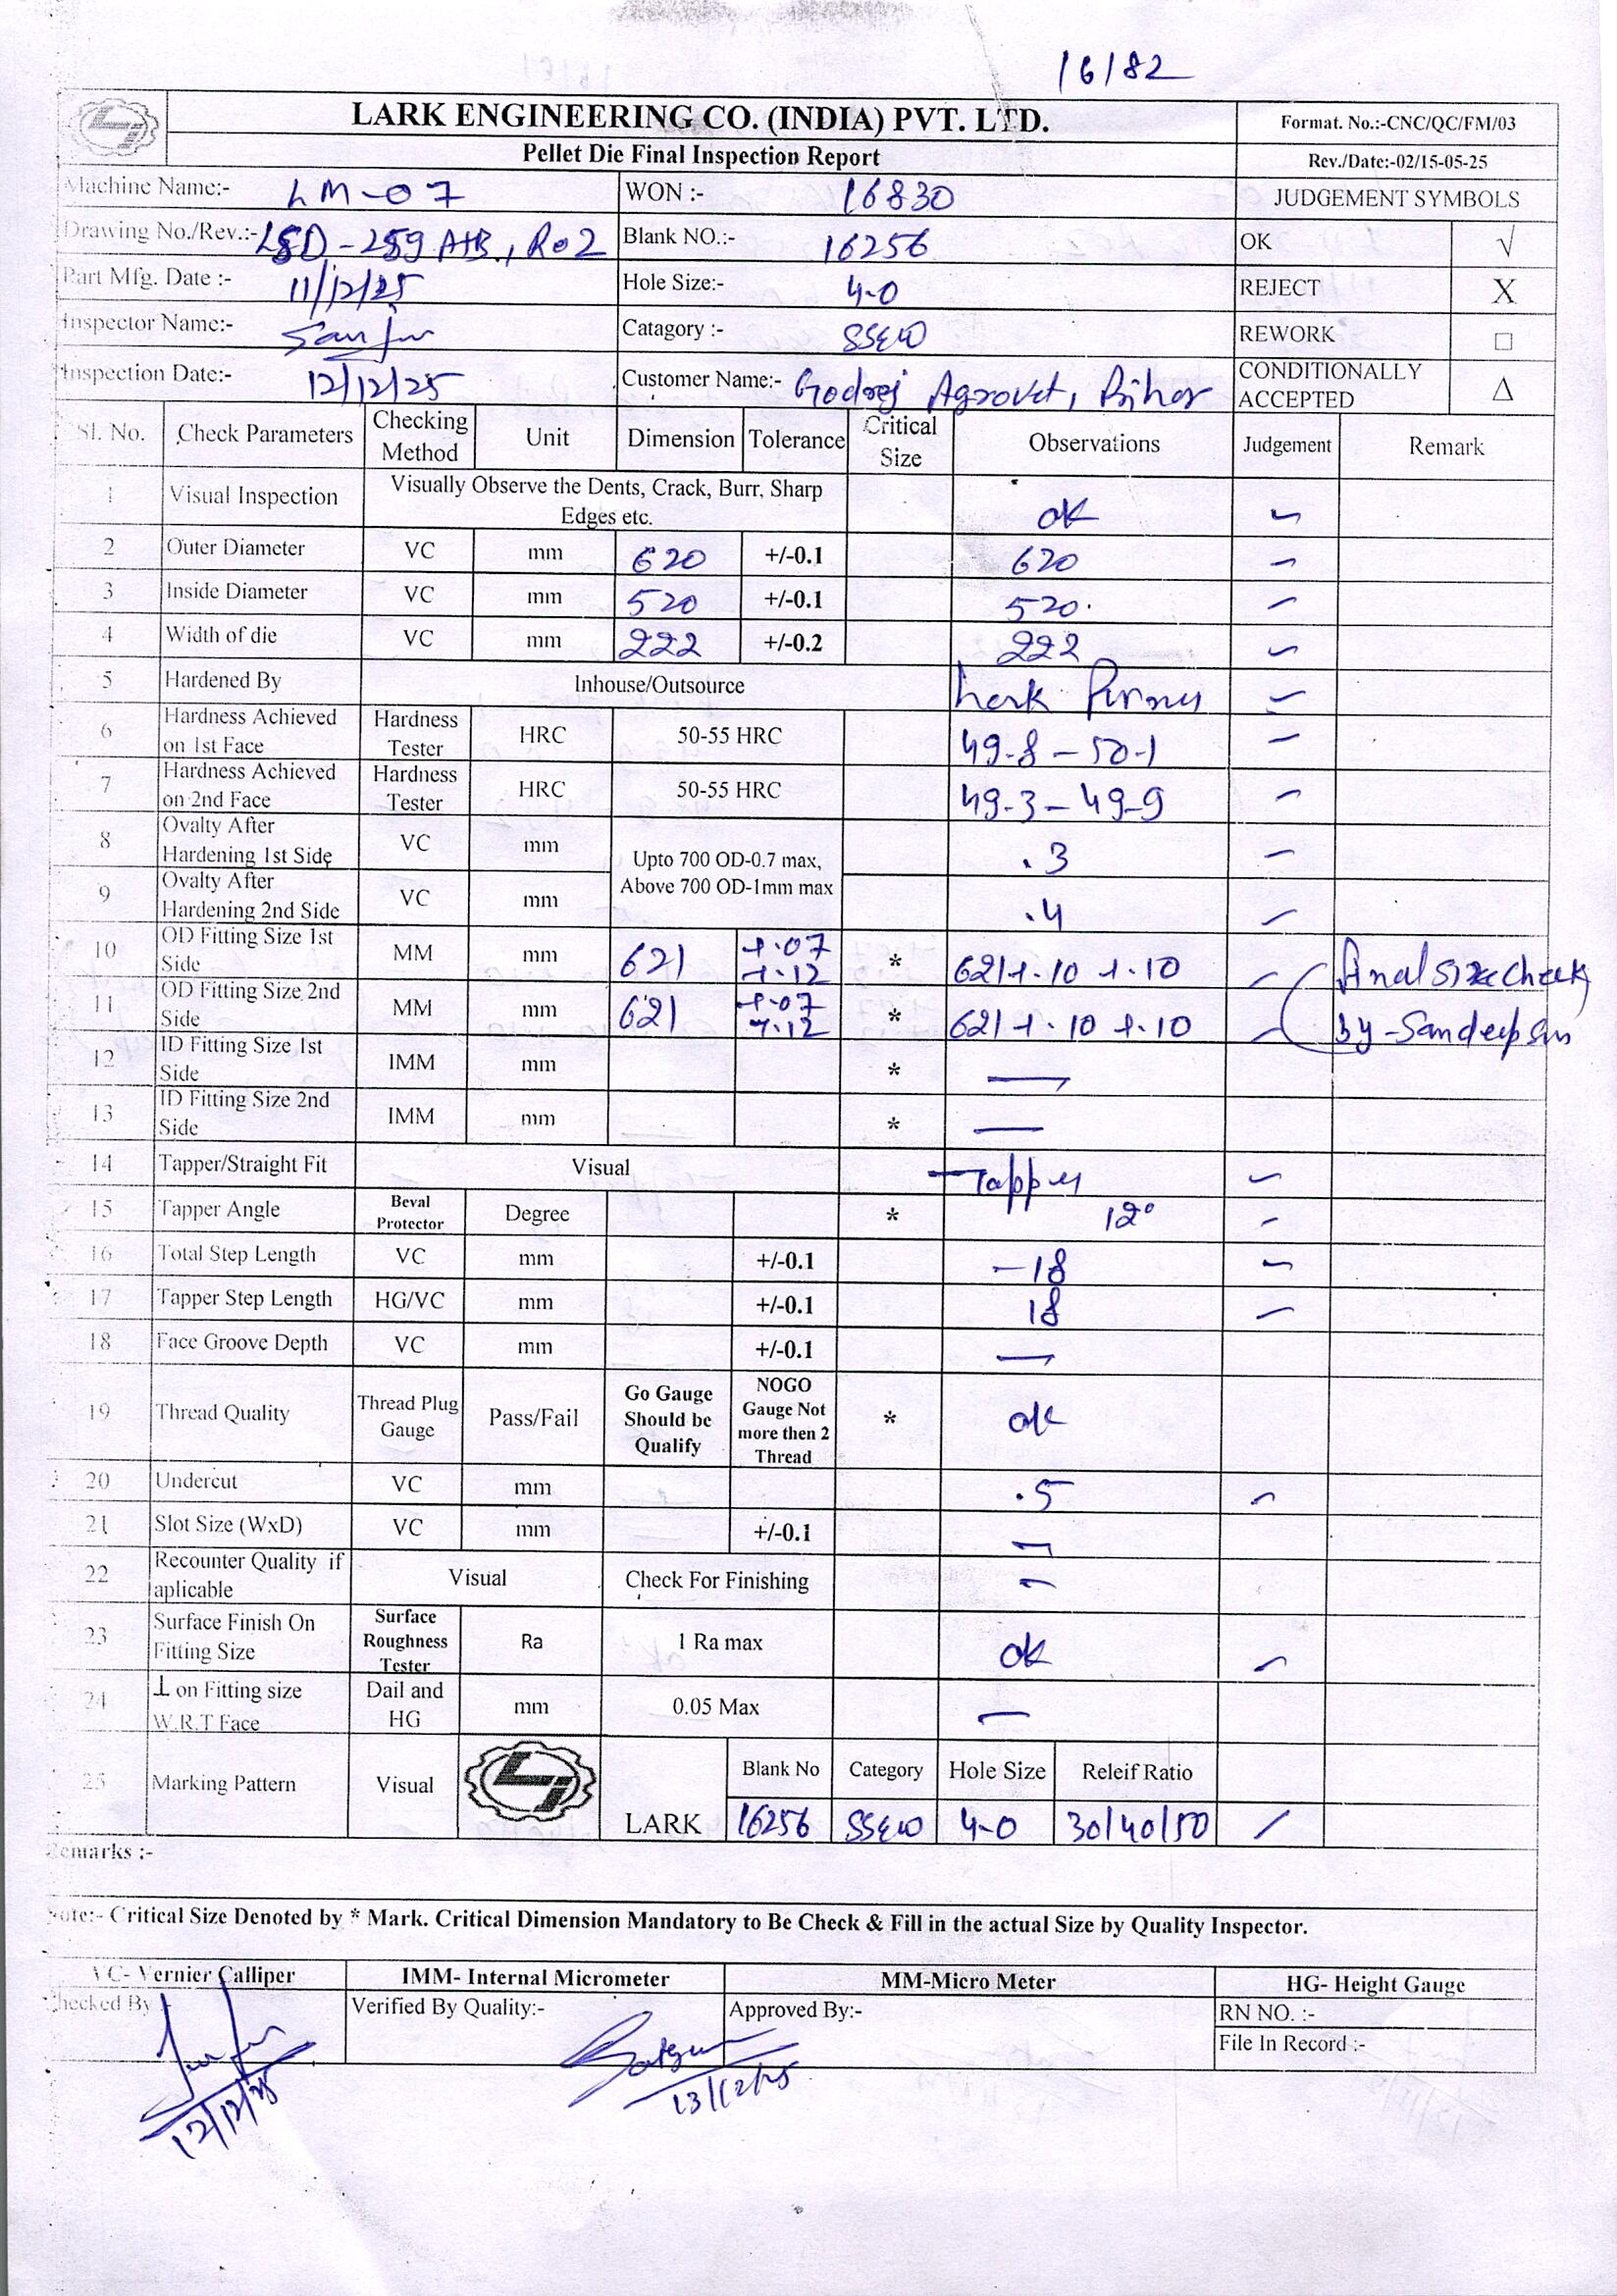 16182
LARK ENGINEERING CO. (INDIA) PVT. LTD.
Format. No.:-CNC/QC/FM/03
Pellet Die Final Inspection Report
Rev./Date:-02/15-05-25
Machine Name:- LM-07 WON :- 16830 JUDGEMENT SYMBOLS
Drawing No./Rev.:- LSD-259 A+B, R02 Blank NO.:- 16256 OK √
Part Mfg. Date :- 11/12/25 Hole Size:- 4-0 REJECT X
Inspector Name:- Catagory :- SSEW REWORK □
Inspection Date:- 12/12/25 Customer Name:- Godrej Agrovet, Bihar CONDITIONALLY ACCEPTED Δ
Sl. No. Check Parameters Checking Method Unit Dimension Tolerance Critical Size Observations Judgement Remark
1 Visual Inspection Visually Observe the Dents, Crack, Burr, Sharp Edges etc. ok
2 Outer Diameter VC mm 620 +/-0.1 620
3 Inside Diameter VC mm 520 +/-0.1 520
4 Width of die VC mm 222 +/-0.2 222
5 Hardened By Inhouse/Outsource Lark
6 Hardness Achieved on 1st Face Hardness Tester HRC 50-55 HRC 49-8 - 50-1
7 Hardness Achieved on 2nd Face Hardness Tester HRC 50-55 HRC 49-3 - 49-9
8 Ovalty After Hardening 1st Side VC mm Upto 700 OD-0.7 max, Above 700 OD-1mm max .3
9 Ovalty After Hardening 2nd Side VC mm .4
10 OD Fitting Size 1st Side MM mm 621 +.07 +.12 * 621+.10 +.10 final size check
11 OD Fitting Size 2nd Side MM mm 621 +.07 +.12 * 621+.10 +.10 By-Sandeep
12 ID Fitting Size 1st Side IMM mm * —
13 ID Fitting Size 2nd Side IMM mm * —
14 Tapper/Straight Fit Visual Tapper
15 Tapper Angle Beval Protector Degree * 12°
16 Total Step Length VC mm +/-0.1 -18
17 Tapper Step Length HG/VC mm +/-0.1 18
18 Face Groove Depth VC mm +/-0.1 —
19 Thread Quality Thread Plug Gauge Pass/Fail Go Gauge Should be Qualify NOGO Gauge Not more then 2 Thread * ok
20 Undercut VC mm .5
21 Slot Size (WxD) VC mm +/-0.1 —
22 Recounter Quality if aplicable Visual Check For Finishing —
23 Surface Finish On Fitting Size Surface Roughness Tester Ra 1 Ra max ok
24 ⊥ on Fitting size W.R.T Face Dail and HG mm 0.05 Max —
25 Marking Pattern Visual LARK Blank No Category Hole Size Releif Ratio
16256 SSEW 4-0 30/40/50
Remarks :-
Note:- Critical Size Denoted by * Mark. Critical Dimension Mandatory to Be Check & Fill in the actual Size by Quality Inspector.
VC- Vernier Calliper IMM- Internal Micrometer MM-Micro Meter HG- Height Gauge
Checked By :- Verified By Quality:- Approved By:- RN NO. :-
File In Record :-
12/12/25 13/12/25